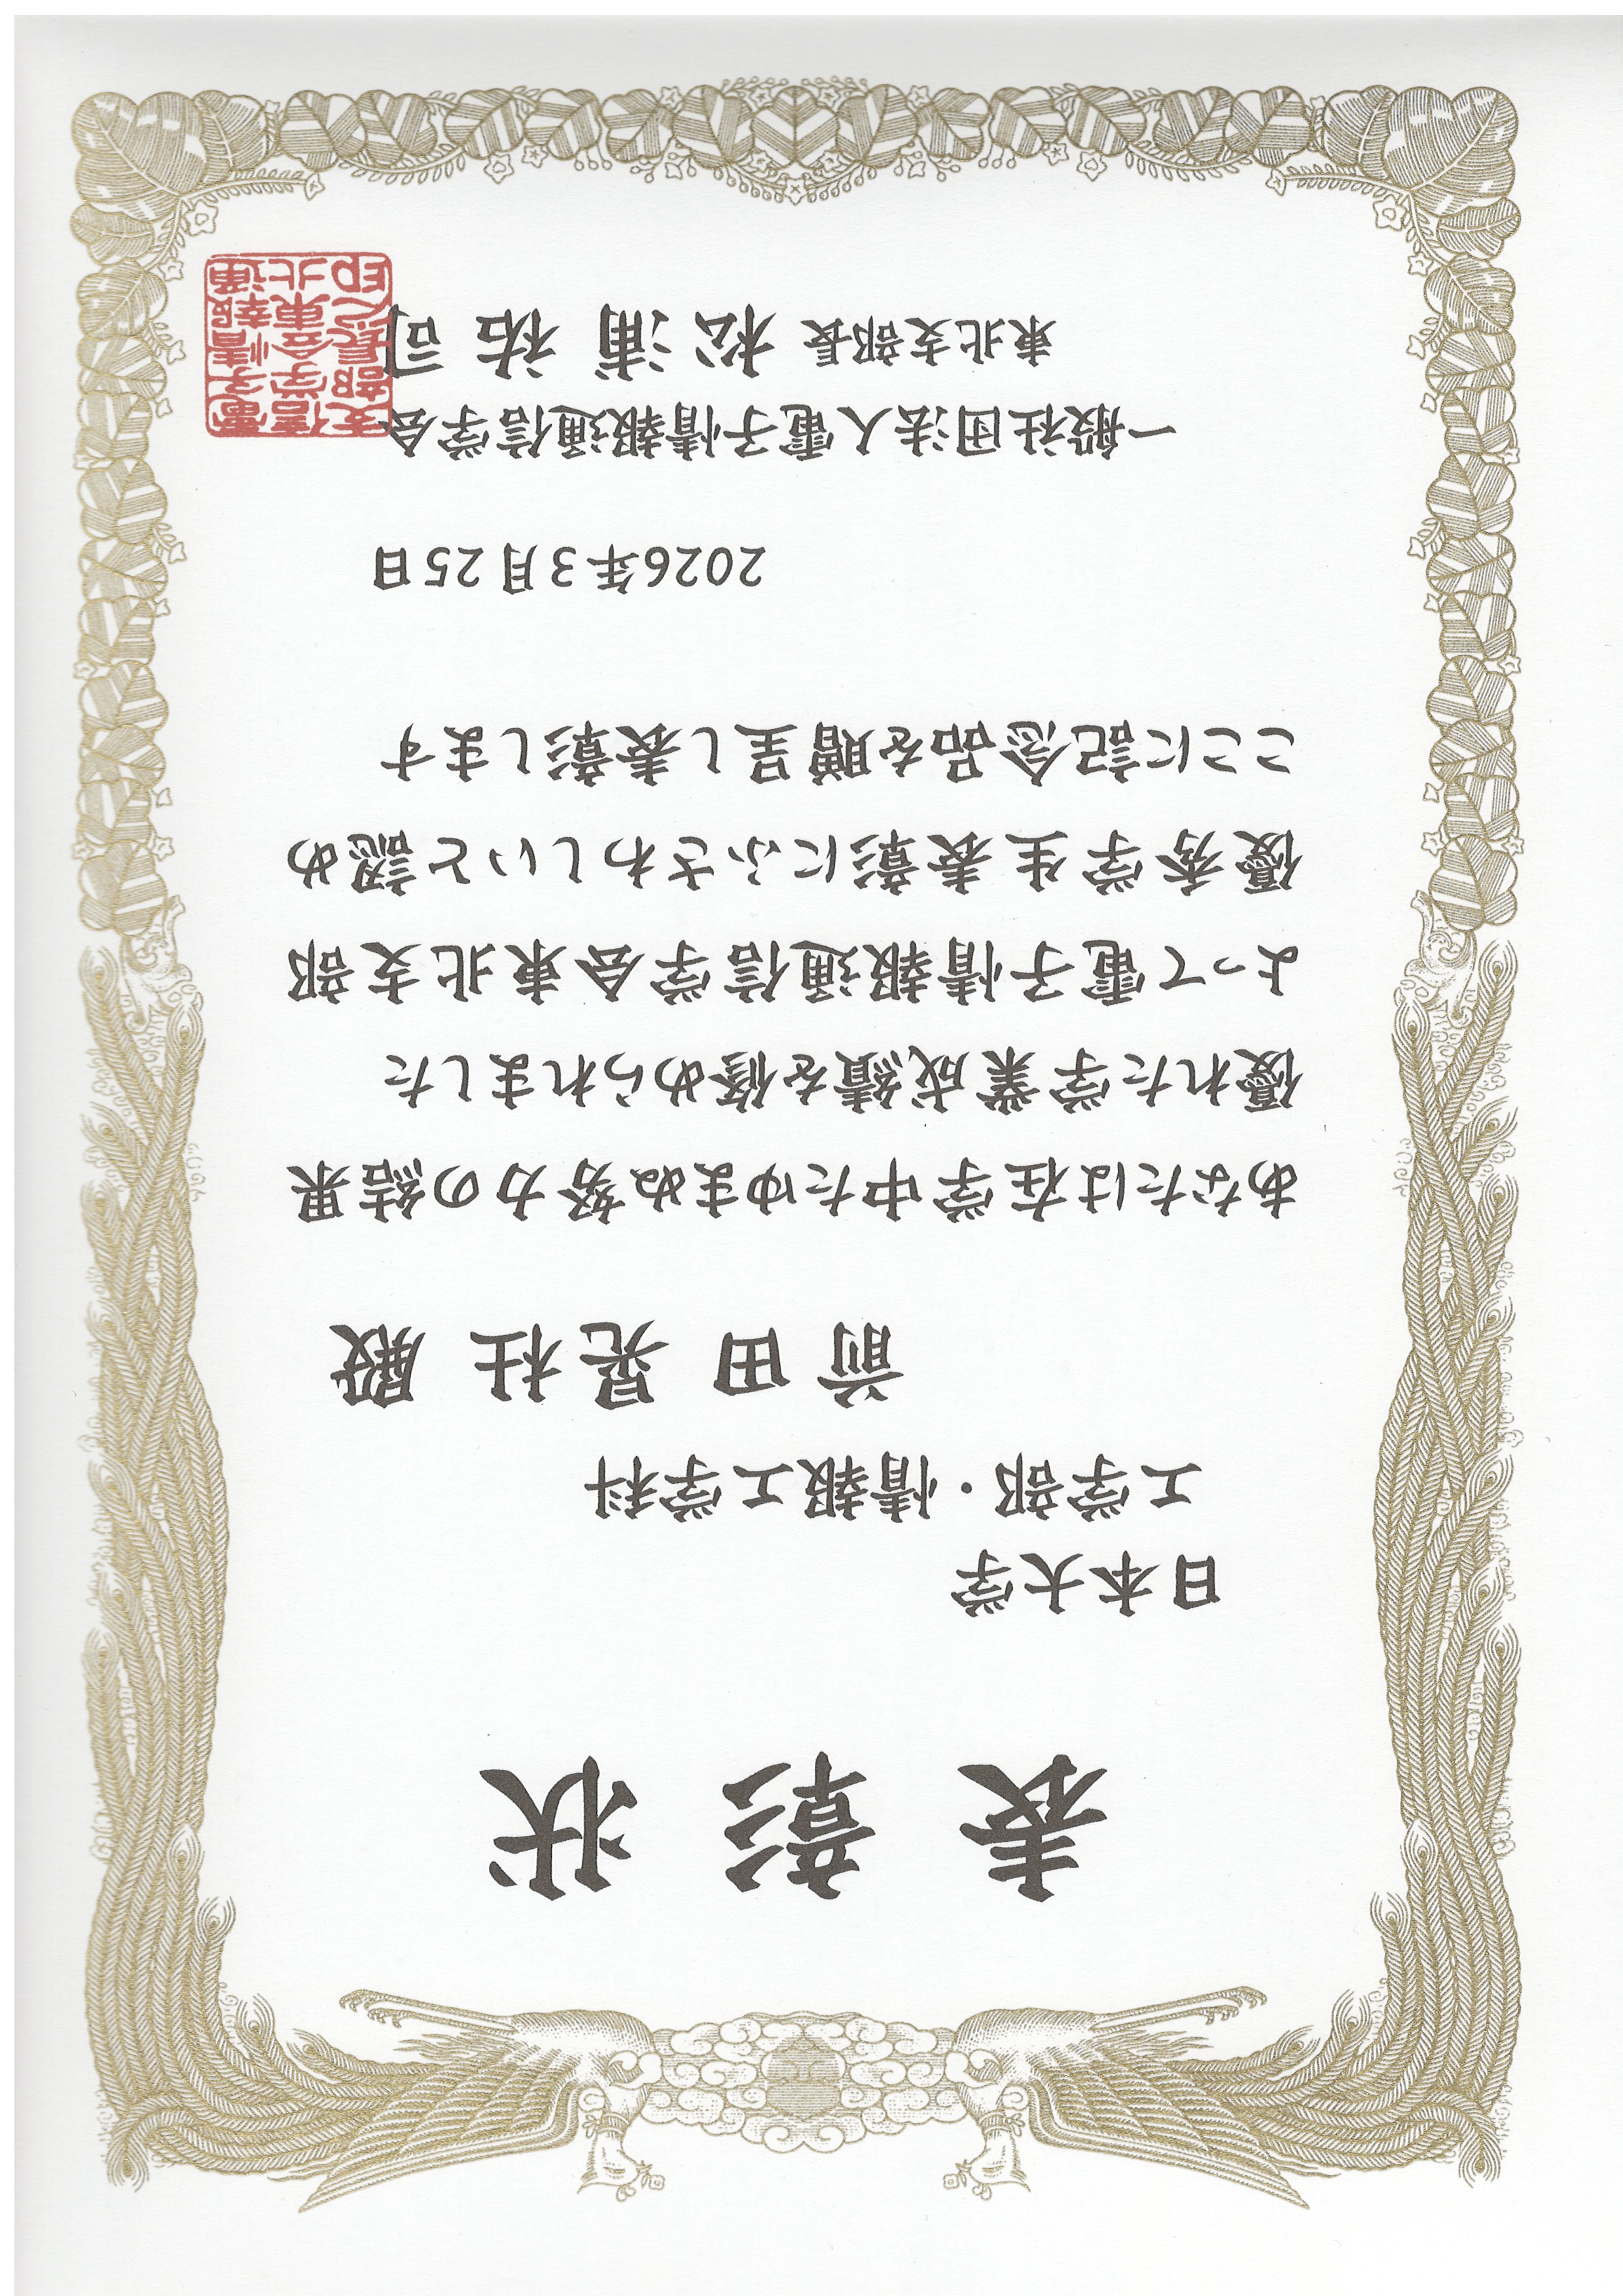 表彰状
日本大学
工学部・情報工学科
前田晃杜 殿
あなたは在学中たゆまぬ努力の結果
優れた学業成績を修められました
よって電子情報通信学会東北支部
優秀学生表彰にふさわしいと認め
ここに記念品を贈呈し表彰します
2026年3月25日
一般社団法人電子情報通信学会
東北支部長 松浦祐司
電子情報通
信学会東北
支部長之印